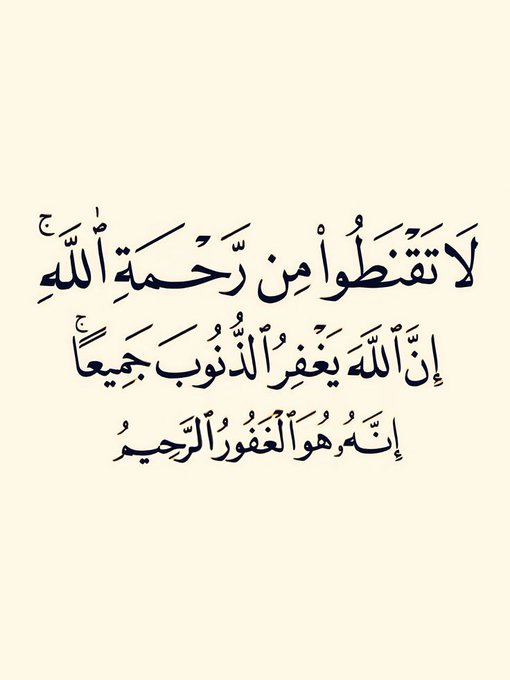 لَا تَقْنَطُوا۟ مِن رَّحْمَةِ ٱللَّهِ ۚ
إِنَّ ٱللَّهَ يَغْفِرُ ٱلذُّنُوبَ جَمِيعًا ۚ
إِنَّهُۥ هُوَ ٱلْغَفُورُ ٱلرَّحِيمُ